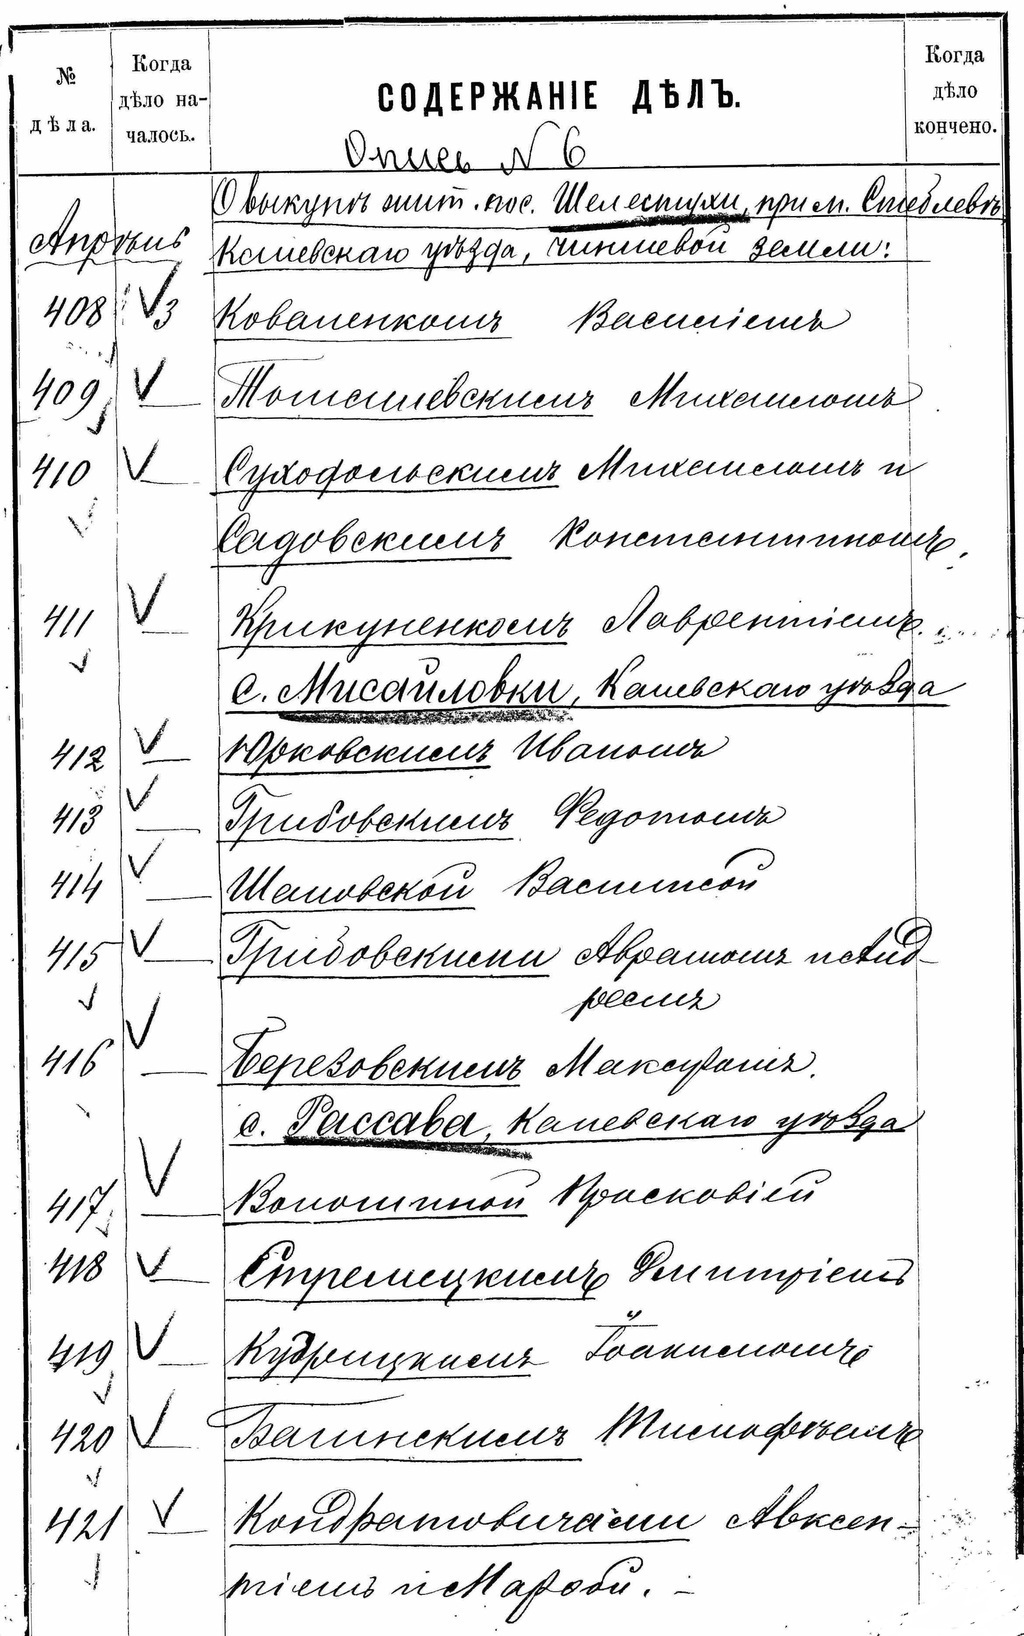 № дѣла.
Когда дѣло на-чалось.
СОДЕРЖАНІЕ ДѢЛЪ.
Когда дѣло кончено.
Опись N 6
О выкупѣ жит. пос. Шелепухи, при м. Стеблевѣ
Апрѣль
Каневскаго уѣзда, чиншевой земли:
408 3 Коваленкомъ Василіемъ
409 — Томашевскимъ Михаиломъ
410 — Суходольскимъ Михаиломъ и
Садовскимъ Константиномъ,
411 — Крикуненкомъ Лаврентіемъ.
с. Мисайловки, Каневскаго уѣзда
412 — Юрковскимъ Иваномъ
413 — Грибовскимъ Федотомъ
414 — Василисой
415 — Грибовскими Аврамомъ и Анд-
реемъ
416 — Березовскимъ Макаромъ.
с. Рассава, Каневскаго уѣзда
417 — Волошиной Прасковіей
418 — Стрелецкимъ Дмитріемъ
419 — Кудрицкимъ Іоакимомъ
420 — Багинскимъ Тимофѣемъ
421 — Кондратовичами Авксен-
тіемъ и —